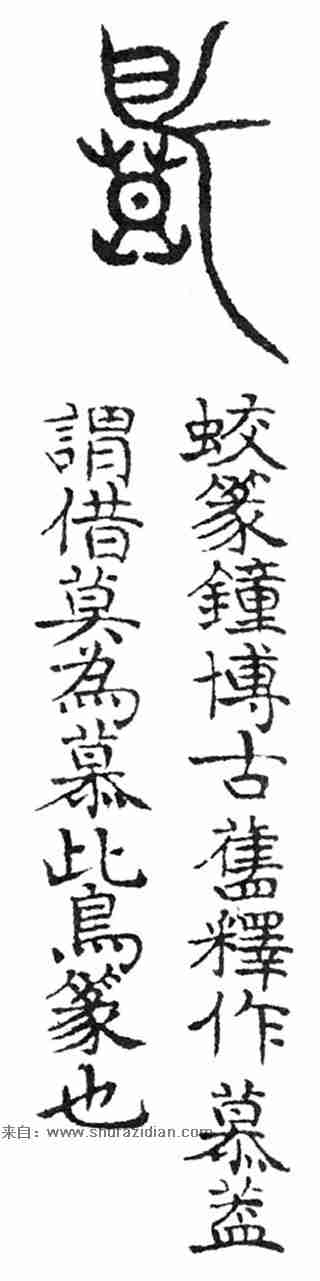 蛟篆鐘博古舊釋作慕葢
謂借莫為慕此鳥篆也
来自：www.shufazidian.com